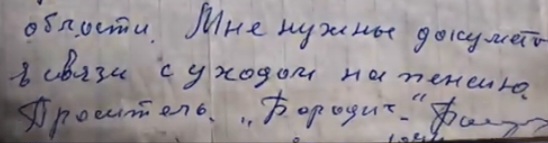 области. Мне нужны документы
в связи с уходом на пенсию.
Проситель. „Бородич.“